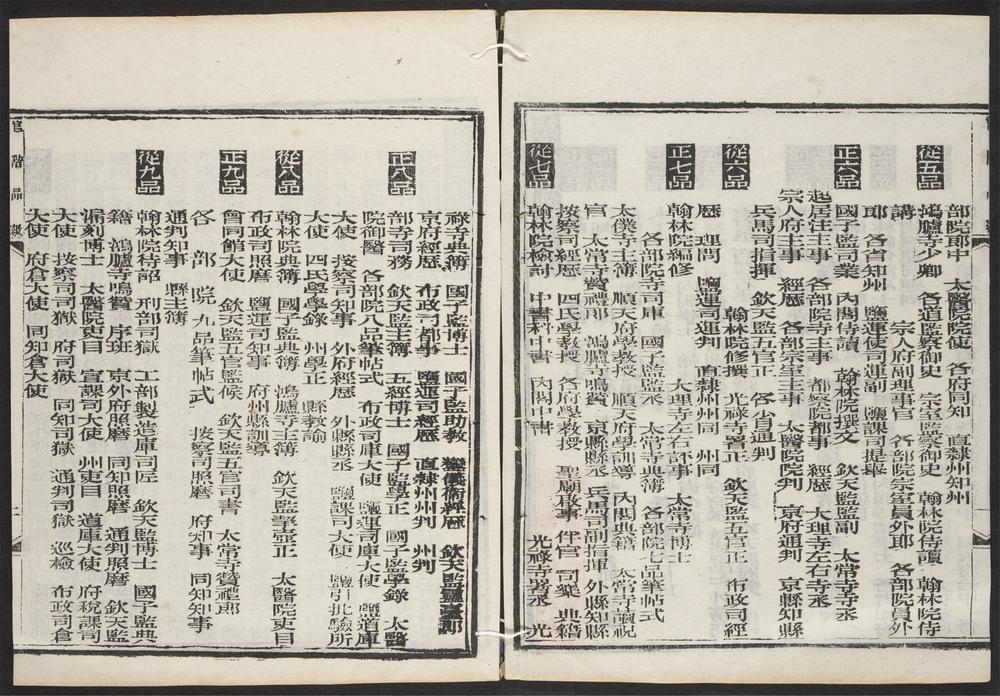 從五品
部院郎中 太醫院院使 各府同知 直隸州知州
鴻臚寺少卿 各道監察御史 宗室監察御史 翰林院侍讀 翰林院侍
講 宗人府副理事官 各部院宗室員外郎 各部院員外
郎 各省知州 鹽運使司運副 鹽課司提舉
正六品
國子監司業 內閣侍讀 翰林院撰文 欽天監監副 太常寺寺丞
起居注主事 各部院寺主事 都察院都事 經歷 大理寺左右寺丞
宗人府主事 經歷 各部宗室主事 太醫院院判 京府通判 京縣知縣
兵馬司指揮 欽天監五官正 各省通判
從六品
翰林院修撰 光祿寺署正 欽天監五官正 布政司經
歷 理問 鹽運司運判 直隸州州同 州同
正七品
翰林院編修 大理寺左右評事 太常寺博士
各部院寺司庫 國子監監丞 太常寺典簿 各部院七品筆帖式
太僕寺主簿 順天府學教授 順天府學訓導 內閣典籍 太常寺讀祝
官 太常寺贊禮郎 鴻臚寺鳴贊 京縣縣丞 兵馬司副指揮 外縣知縣
按察司經歷 四氏學教授 各府學教授 聖廟執事 伴官 司樂 典籍
從七品
翰林院檢討 中書科中書 內閣中書 光祿寺署丞 光
祿寺典簿 國子監博士 國子監助教 鑾儀衛經歷 欽天監靈臺郎
京府經歷 布政司都事 鹽運司經歷 直隸州州判 州判
正八品
部寺司務 欽天監主簿 五經博士 國子監學正 國子監學錄 太醫
院御醫 各部院八品筆帖式 布政司庫大使 鹽運司庫大使 鹽道庫
大使 按察司知事 外府經歷 外縣縣丞 鹽課司大使 鹽引批驗所
大使 四氏學學錄 州學正 縣教諭
從八品
翰林院典簿 國子監典簿 鴻臚寺主簿 欽天監挈壺正 太醫院吏目
布政司照磨 鹽運司知事 府州縣訓導
正九品
會同館大使 欽天監五官監候 欽天監五官司書 太常寺贊禮郎
各部院九品筆帖式 按察司照磨 府知事 同知知事
通判知事 縣主簿
從九品
翰林院待詔 刑部司獄 工部製造庫司匠 欽天監博士 國子監典
籍 鴻臚寺鳴贊 序班 京外府照磨 同知照磨 通判照磨 欽天監
漏刻博士 太醫院吏目 宣課司大使 州吏目 道庫大使 府稅課司
大使 按察司司獄 府司獄 同知司獄 通判司獄 巡檢 布政司倉
大使 府倉大使 同知倉大使
官階品級 二